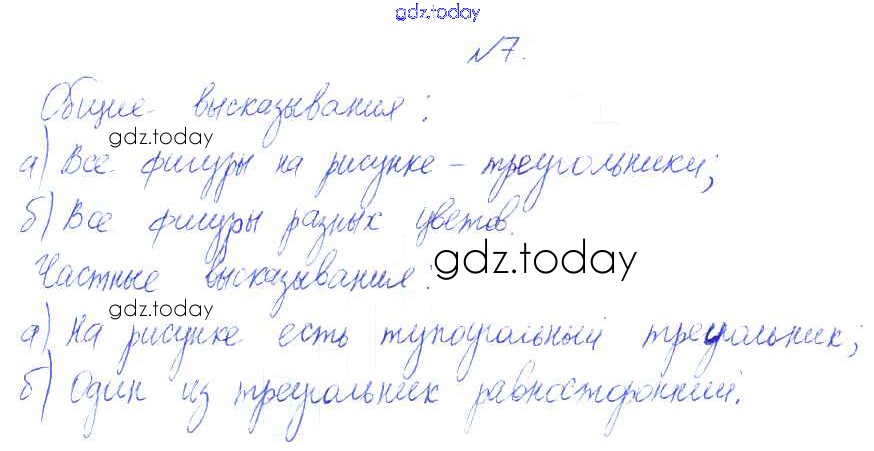 gdz.today
№7.
Общие высказывания:
gdz.today
а) Все фигуры на рисунке - треугольники;
б) Все фигуры разных цветов.
Частные высказывания:
gdz.today
gdz.today
а) На рисунке есть тупоугольный треугольник;
б) Один из треугольник равносторонний.